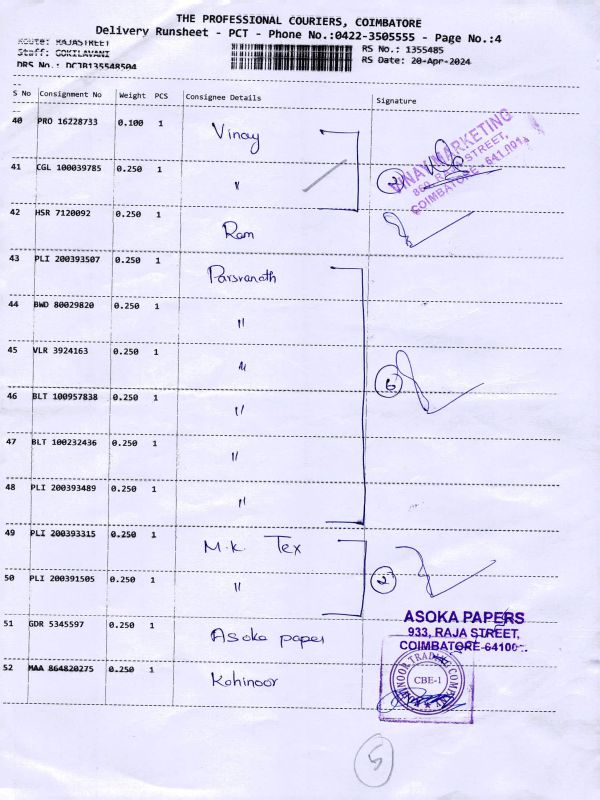 THE PROFESSIONAL COURIERS, COIMBATORE
Delivery Runsheet - PCT - Phone No.:0422-3505555 - Page No.:4
Route: RAJASTREET
Staff: GOKILAVANI
DRS No.: DCJB135548504
RS No.: 1355485
RS Date: 20-Apr-2024
S No Consignment No Weight PCS Consignee Details Signature
40 PRO 16228733 0.100 1 Vinay
VINAY MARKETING
STREET,
COIMBATORE - 641 001
41 CGL 100039785 0.250 1 " 2
42 HSR 7120092 0.250 1 Ram
43 PLI 200393507 0.250 1 Parsvanath
44 BWD 80029820 0.250 1 "
45 VLR 3924163 0.250 1 " 6
46 BLT 100957838 0.250 1 "
47 BLT 100232436 0.250 1 "
48 PLI 200393489 0.250 1 "
49 PLI 200393315 0.250 1 M.K. Tex
50 PLI 200391505 0.250 1 " 2
51 GDR 5345597 0.250 1 Asoka paper
ASOKA PAPERS
933, RAJA STREET,
COIMBATORE-64100
52 MAA 864820275 0.250 1 Kohinoor
KOHINOOR TRADING COMPANY
CBE-1
5